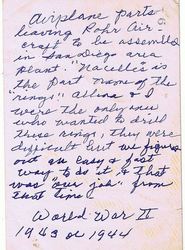 Airplane parts
leaving Rohr Air-
craft to be assembled
in San Diego area
plant. "Nacelle" is
the part name of the
"rings" Allina & I
were the only ones
who wanted to drill
these rings, they were
difficult but we figured
out an easy & fast
way to do it & that
was "our job" from
that time,
World War II
1943 or 1944